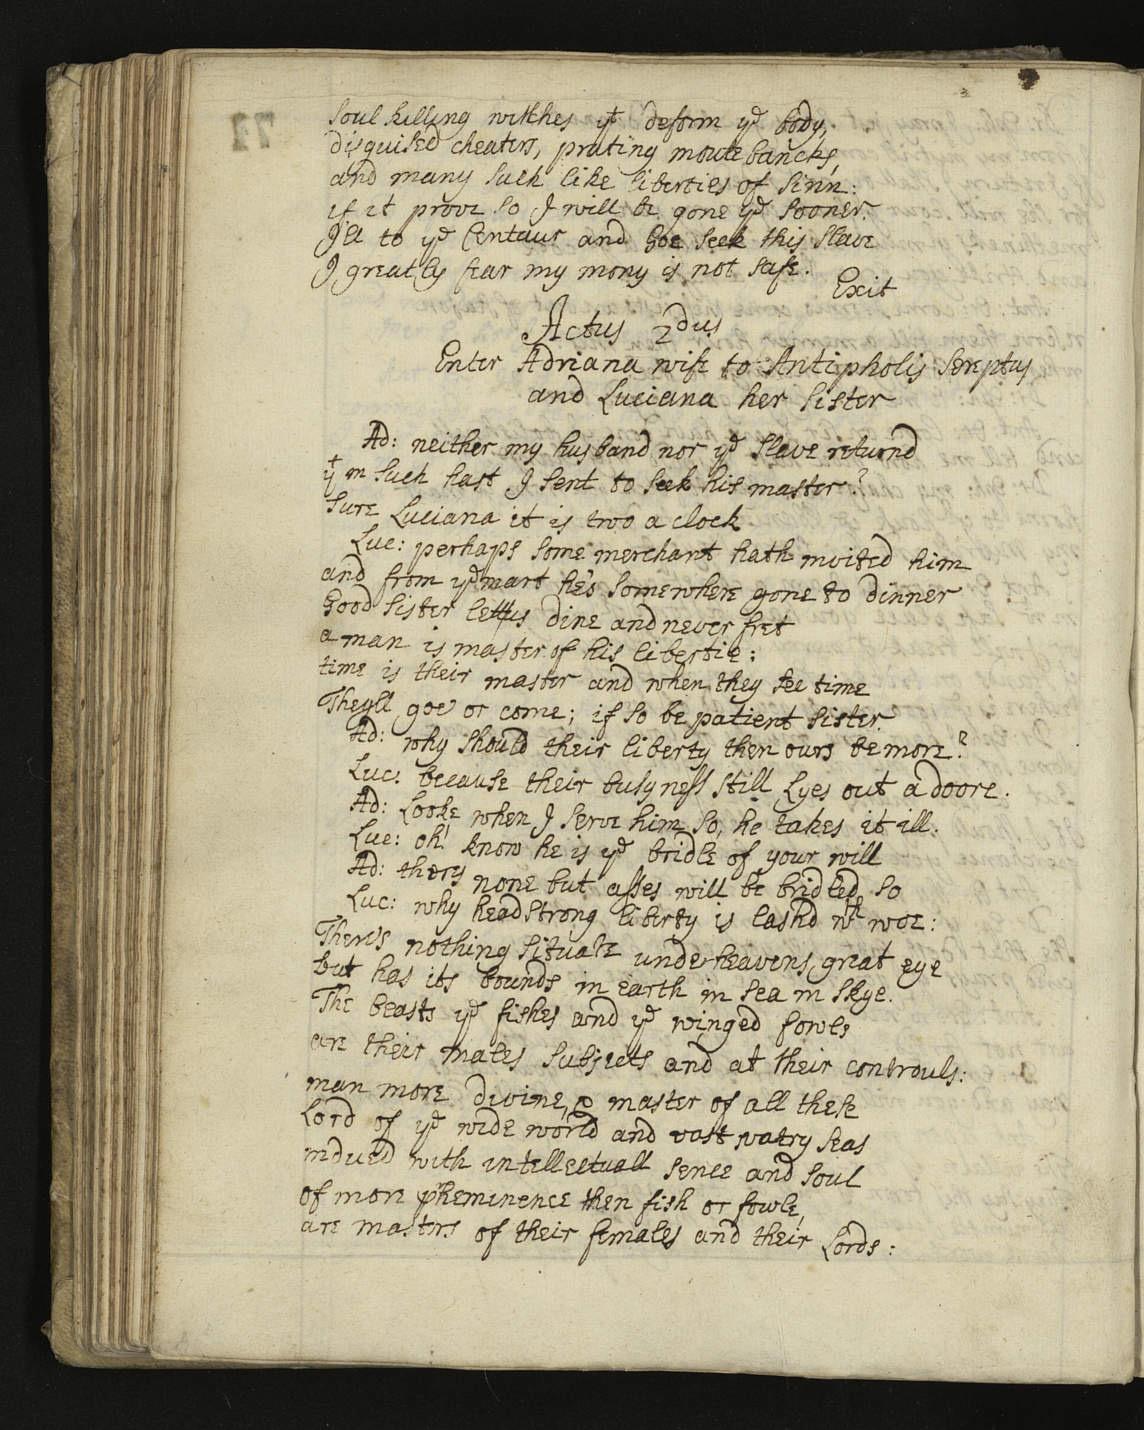 soul killing witches yt deform ye body,
disguised cheaters, prating moutebancks,
and many such like liberties of sinn:
if it prove so I will be gone ye sooner.
I'll to ye Centaur and Goe seek this slave
I greatly fear my mony is not safe.
Exit
Actus 2dus
Enter Adriana wife to Antipholis Sereptus
and Luciana her sister
Ad: neither my husband nor ye slave returnd
yt in such hast I sent to seek his master?
sure Luciana it is two a clock
Luc: perhaps some merchant hath invited him
and from ye mart he's somewhere gone to dinner
Good sister lettus dine and never fret
a man is master of his libertie:
time is their master and when they see time
Theyll goe or come; if so be patient sister.
Ad: why should their liberty then ours be more?
Luc: because their busyness still Lyes out a doore.
Ad: Looke when I serve him so, he takes it ill.
Luc: oh! know he is ye bridle of your will
Ad: therys none but asses will be bridled so
Luc: why headstrong liberty is lashd wth woe:
There's nothing situate under heavens great eye
but has its bounds in earth in sea in skye.
The beasts ye fishes and ye winged fowls
are their males subjects and at their controuls:
man more divine, master of all these
Lord of ye wide world and vast watry seas
indued with intellectuall sence and soul
of more preheminence then fish or fowle,
are masters of their females and their Lords: